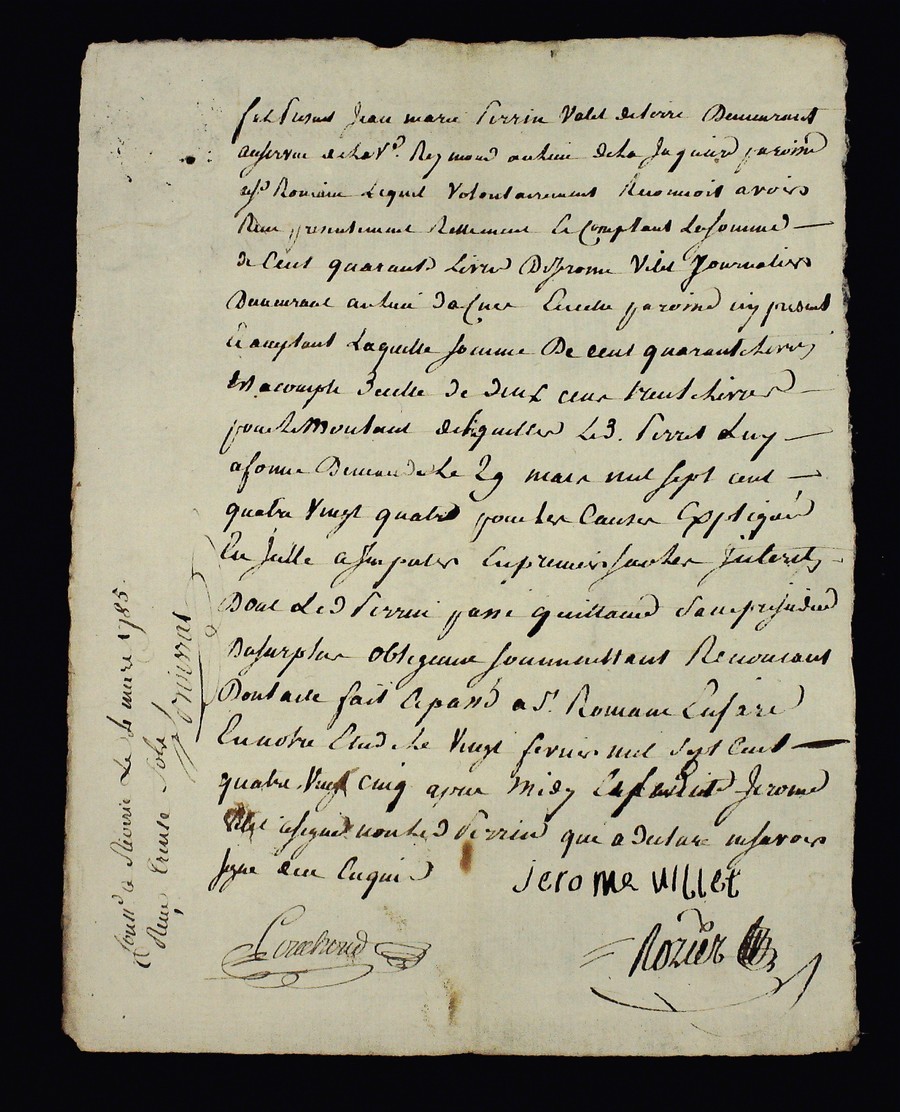 fut present Jean marie Perrin Valet de terre Demeurant
au servic de la Ve. Reymond au lieu de la paroisse
St Romain Lequel Volontairement Reconnoit avoir
Receu presentement Reellement Et Comptant La somme
de Cent quarante Livres De Jerome Vilet Journalier
Demeurant au lieu paroisse icy present
Et acceptant Laquelle somme De cent quarante Livres
Est acompte d'celle de deux cens trente Livres
pour le Montant de Led. Perret Luy
29 mars mil sept cent
quatre Vingt quatre pour les Causes Expliqués
En Jcelle a Imputer En premier sur les Interets
Dont Led Perrin passe quittance sans prejudice
Du surplus obligeant soummettant Renoncant
Dont acte fait Et passé a St. Romain En Jarez
En notre Etude Le Vingt fevrier mil sept Cent
quatre Vingt Cinq apres Midy En presence Jerome
Vilet a signé non Led Perrin qui a declaré ne savoir
signe de ce Enquis
Jerome VILLet
Rozier
Conllé a Le mars 1785.
Receu trente Sols